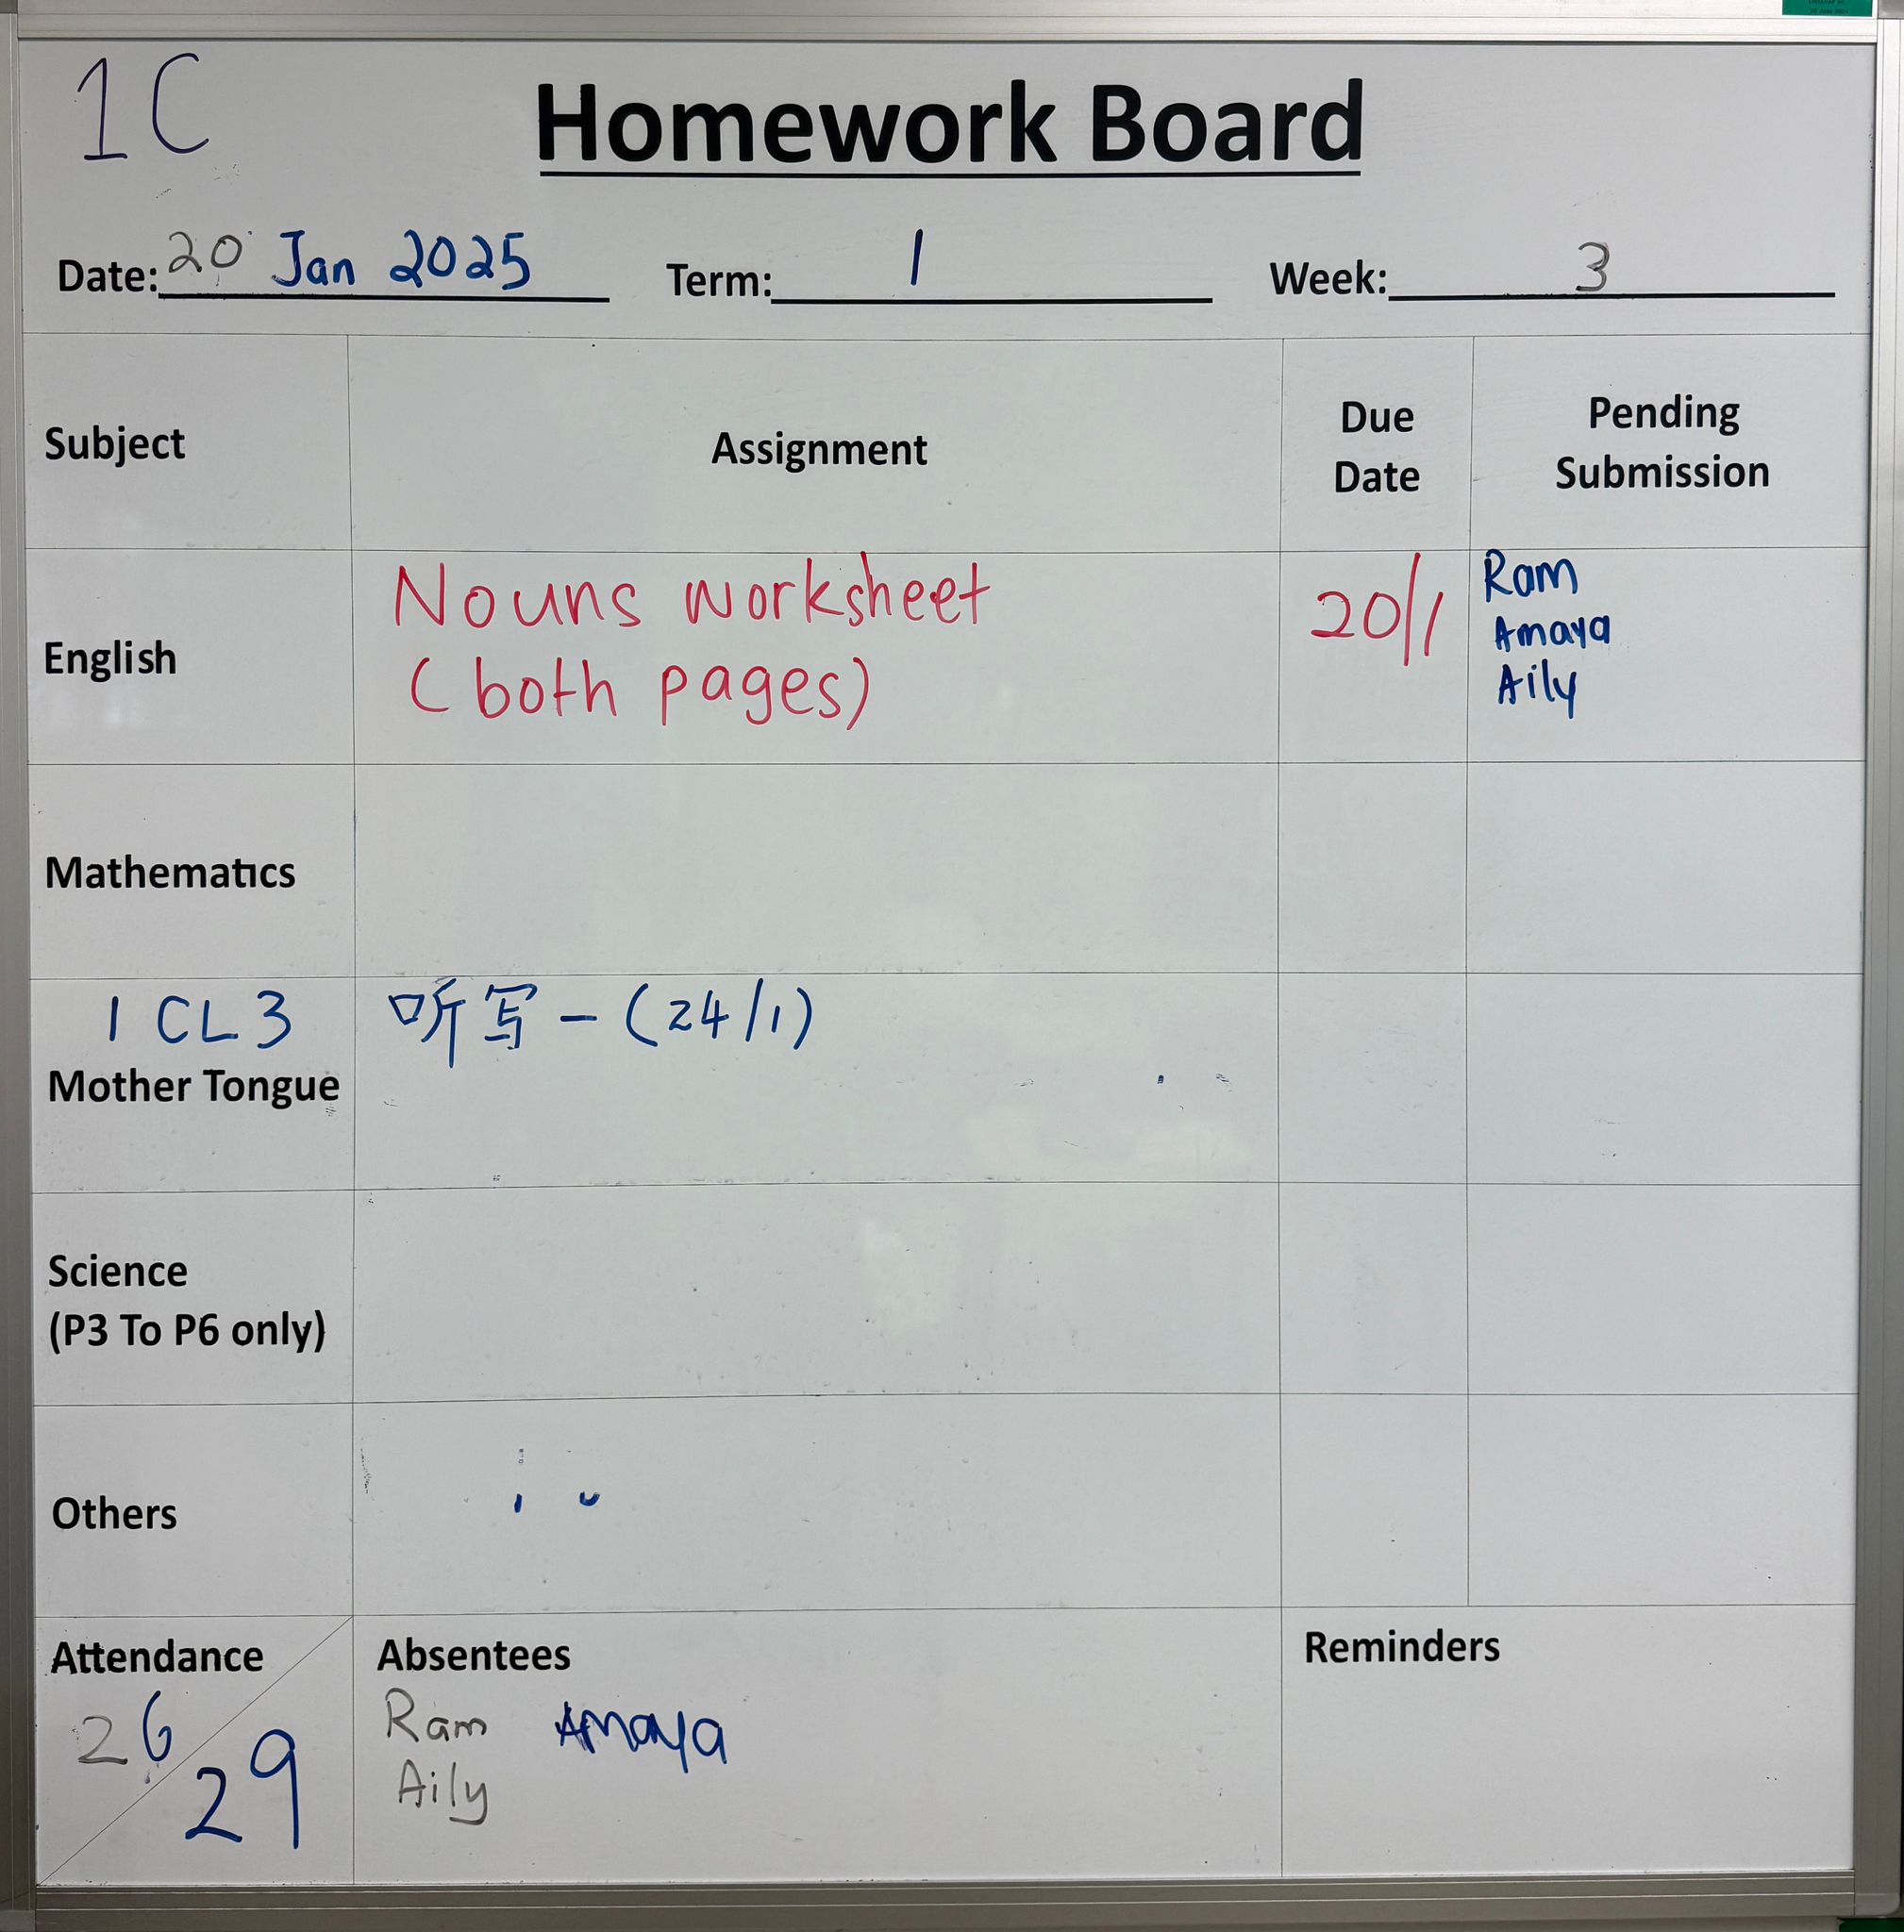 1C
Homework Board
Date: 20 Jan 2025 Term: 1 Week: 3
Subject
Assignment
Due
Date
Pending
Submission
English
Nouns worksheet
(both pages)
20/1
Ram
Amaya
Aily
Mathematics
1 CL3
Mother Tongue
听写 - (24/1)
Science
(P3 To P6 only)
Others
Attendance
26
29
Absentees
Ram Amaya
Aily
Reminders